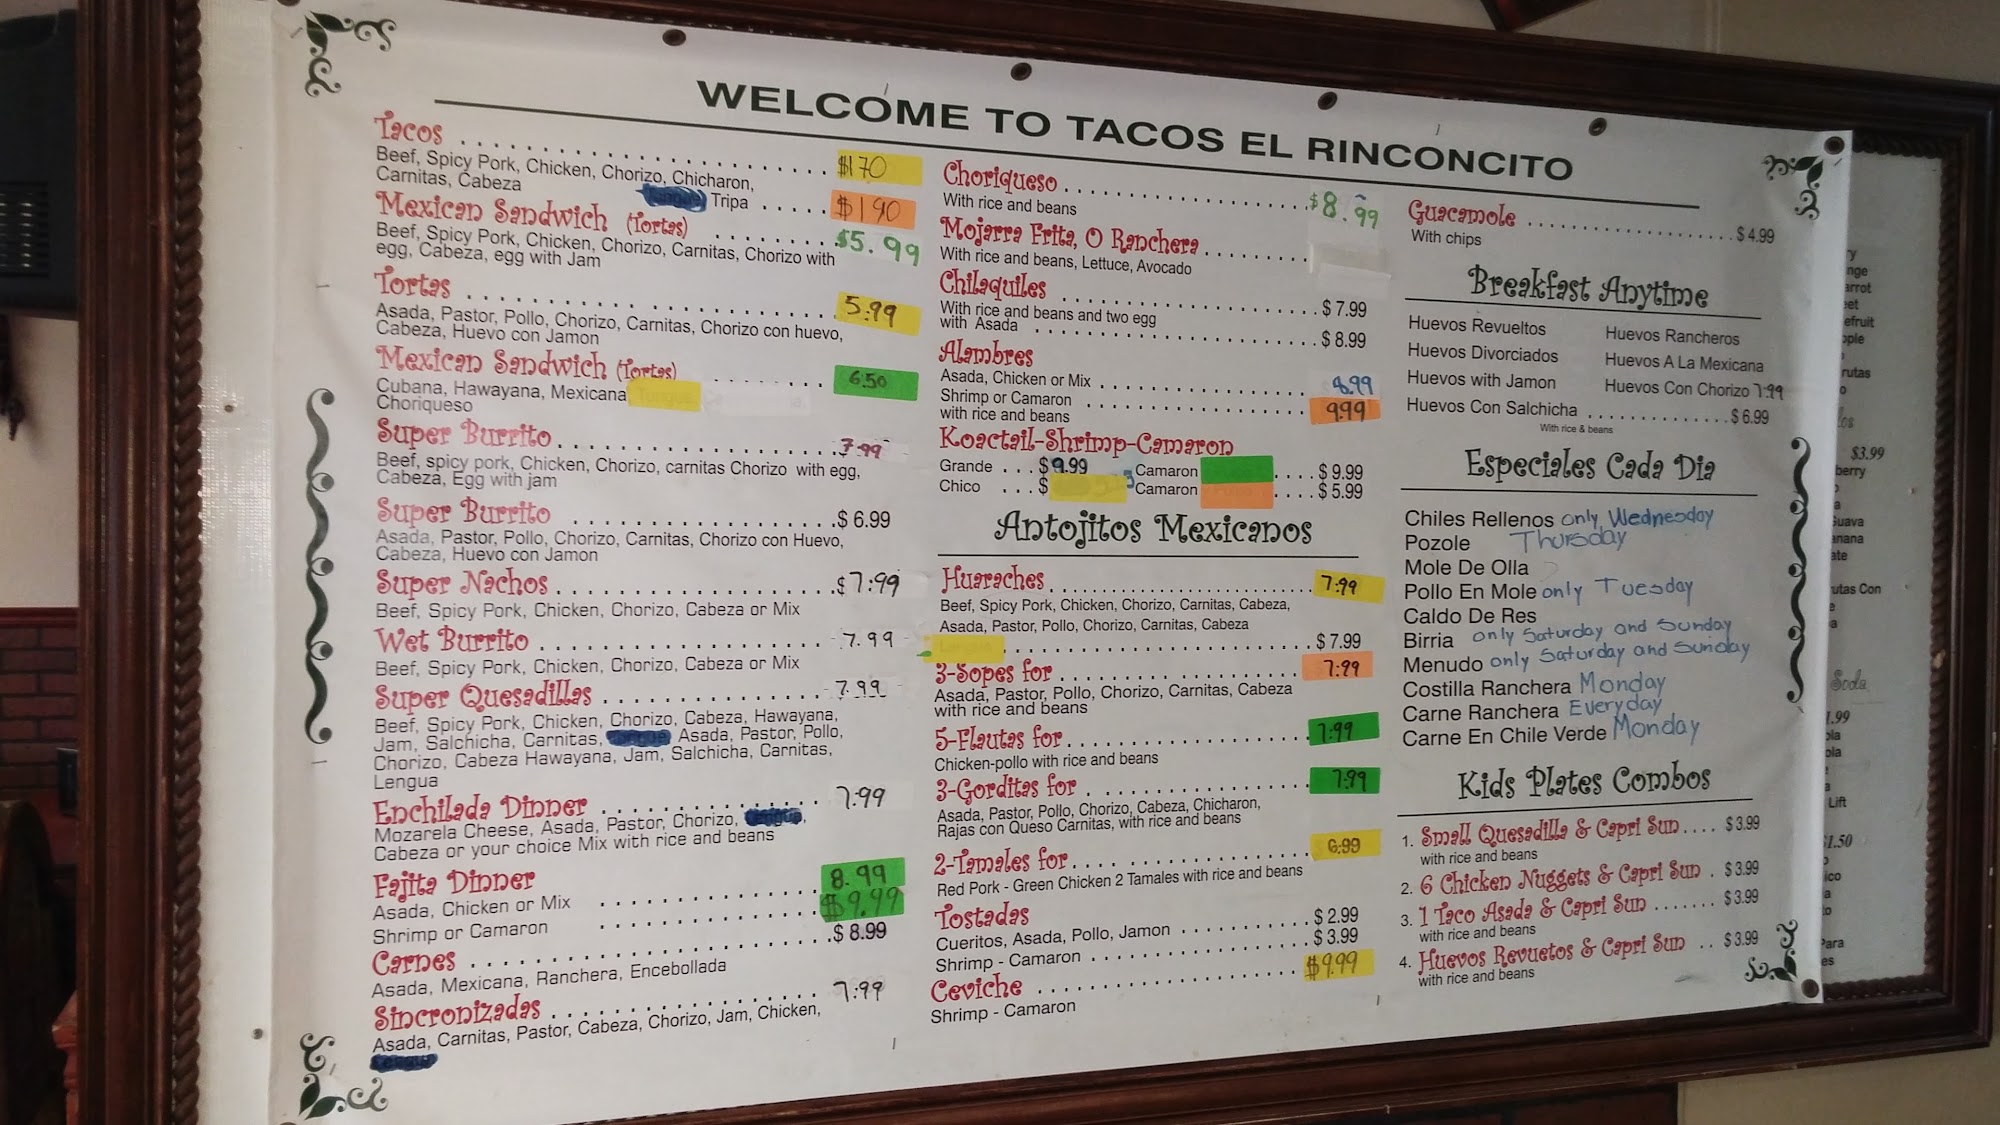 WELCOME TO TACOS EL RINCONCITO
Tacos
Beef, Spicy Pork, Chicken, Chorizo, Chicharon, $170
Carnitas, Cabeza
Tripa ..... $190
Mexican Sandwich (Tortas) ......... $5.99
Beef, Spicy Pork, Chicken, Chorizo, Carnitas, Chorizo with
egg, Cabeza, egg with Jam
Tortas ......... 5.99
Asada, Pastor, Pollo, Chorizo, Carnitas, Chorizo con huevo,
Cabeza, Huevo con Jamon
Mexican Sandwich (Tortas) ......... 6.50
Cubana, Hawayana, Mexicana
Choriqueso
Super Burrito ......... 7.99
Beef, spicy pork, Chicken, Chorizo, carnitas Chorizo with egg,
Cabeza, Egg with jam
Super Burrito ......... $ 6.99
Asada, Pastor, Pollo, Chorizo, Carnitas, Chorizo con Huevo,
Cabeza, Huevo con Jamon
Super Nachos ......... $ 7.99
Beef, Spicy Pork, Chicken, Chorizo, Cabeza or Mix
Wet Burrito ......... 7.99
Beef, Spicy Pork, Chicken, Chorizo, Cabeza or Mix
Super Quesadillas ......... 7.99
Beef, Spicy Pork, Chicken, Chorizo, Cabeza, Hawayana,
Jam, Salchicha, Carnitas, Asada, Pastor, Pollo,
Chorizo, Cabeza Hawayana, Jam, Salchicha, Carnitas,
Lengua
Enchilada Dinner ......... 7.99
Mozarela Cheese, Asada, Pastor, Chorizo,
Cabeza or your choice Mix with rice and beans
Fajita Dinner
Asada, Chicken or Mix ......... 8.99
Shrimp or Camaron ......... $9.99
Carnes ......... $ 8.99
Asada, Mexicana, Ranchera, Encebollada
Sincronizadas ......... 7.99
Asada, Carnitas, Pastor, Cabeza, Chorizo, Jam, Chicken,
Choriqueso ......... $8.99
With rice and beans
Mojarra Frita, O Ranchera .........
With rice and beans, Lettuce, Avocado
Chilaquiles
With rice and beans and two egg ......... $ 7.99
with Asada ......... $ 8.99
Alambres
Asada, Chicken or Mix ......... 8.99
Shrimp or Camaron
with rice and beans ......... 9.99
Koactail-Shrimp-Camaron
Grande ... $9.99 Camaron .... $ 9.99
Chico ... $ Camaron .... $ 5.99
Antojitos Mexicanos
Huaraches ......... 7.99
Beef, Spicy Pork, Chicken, Chorizo, Carnitas, Cabeza,
Asada, Pastor, Pollo, Chorizo, Carnitas, Cabeza
......... $ 7.99
3-Sopes for ......... 7.99
Asada, Pastor, Pollo, Chorizo, Carnitas, Cabeza
with rice and beans
5-Flautas for ......... 7.99
Chicken-pollo with rice and beans
3-Gorditas for ......... 7.99
Asada, Pastor, Pollo, Chorizo, Cabeza, Chicharon,
Rajas con Queso Carnitas, with rice and beans
2-Tamales for ......... 6.99
Red Pork - Green Chicken 2 Tamales with rice and beans
Tostadas
Cueritos, Asada, Pollo, Jamon ......... $ 2.99
Shrimp - Camaron ......... $ 3.99
Ceviche ......... $9.99
Shrimp - Camaron
Guacamole ......... $ 4.99
With chips
Breakfast Anytime
Huevos Revueltos Huevos Rancheros
Huevos Divorciados Huevos A La Mexicana
Huevos with Jamon Huevos Con Chorizo 7.99
Huevos Con Salchicha ......... $ 6.99
With rice & beans
Especiales Cada Dia
Chiles Rellenos only Wednesday
Pozole Thursday
Mole De Olla
Pollo En Mole only Tuesday
Caldo De Res
Birria only Saturday and Sunday
Menudo only Saturday and Sunday
Costilla Ranchera Monday
Carne Ranchera Everyday
Carne En Chile Verde Monday
Kids Plates Combos
1. Small Quesadilla & Capri Sun .... $ 3.99
with rice and beans
2. 6 Chicken Nuggets & Capri Sun . $ 3.99
3. 1 Taco Asada & Capri Sun ....... $ 3.99
with rice and beans
4. Huevos Revuetos & Capri Sun .. $ 3.99
with rice and beans
$3.99
Soda
Lift